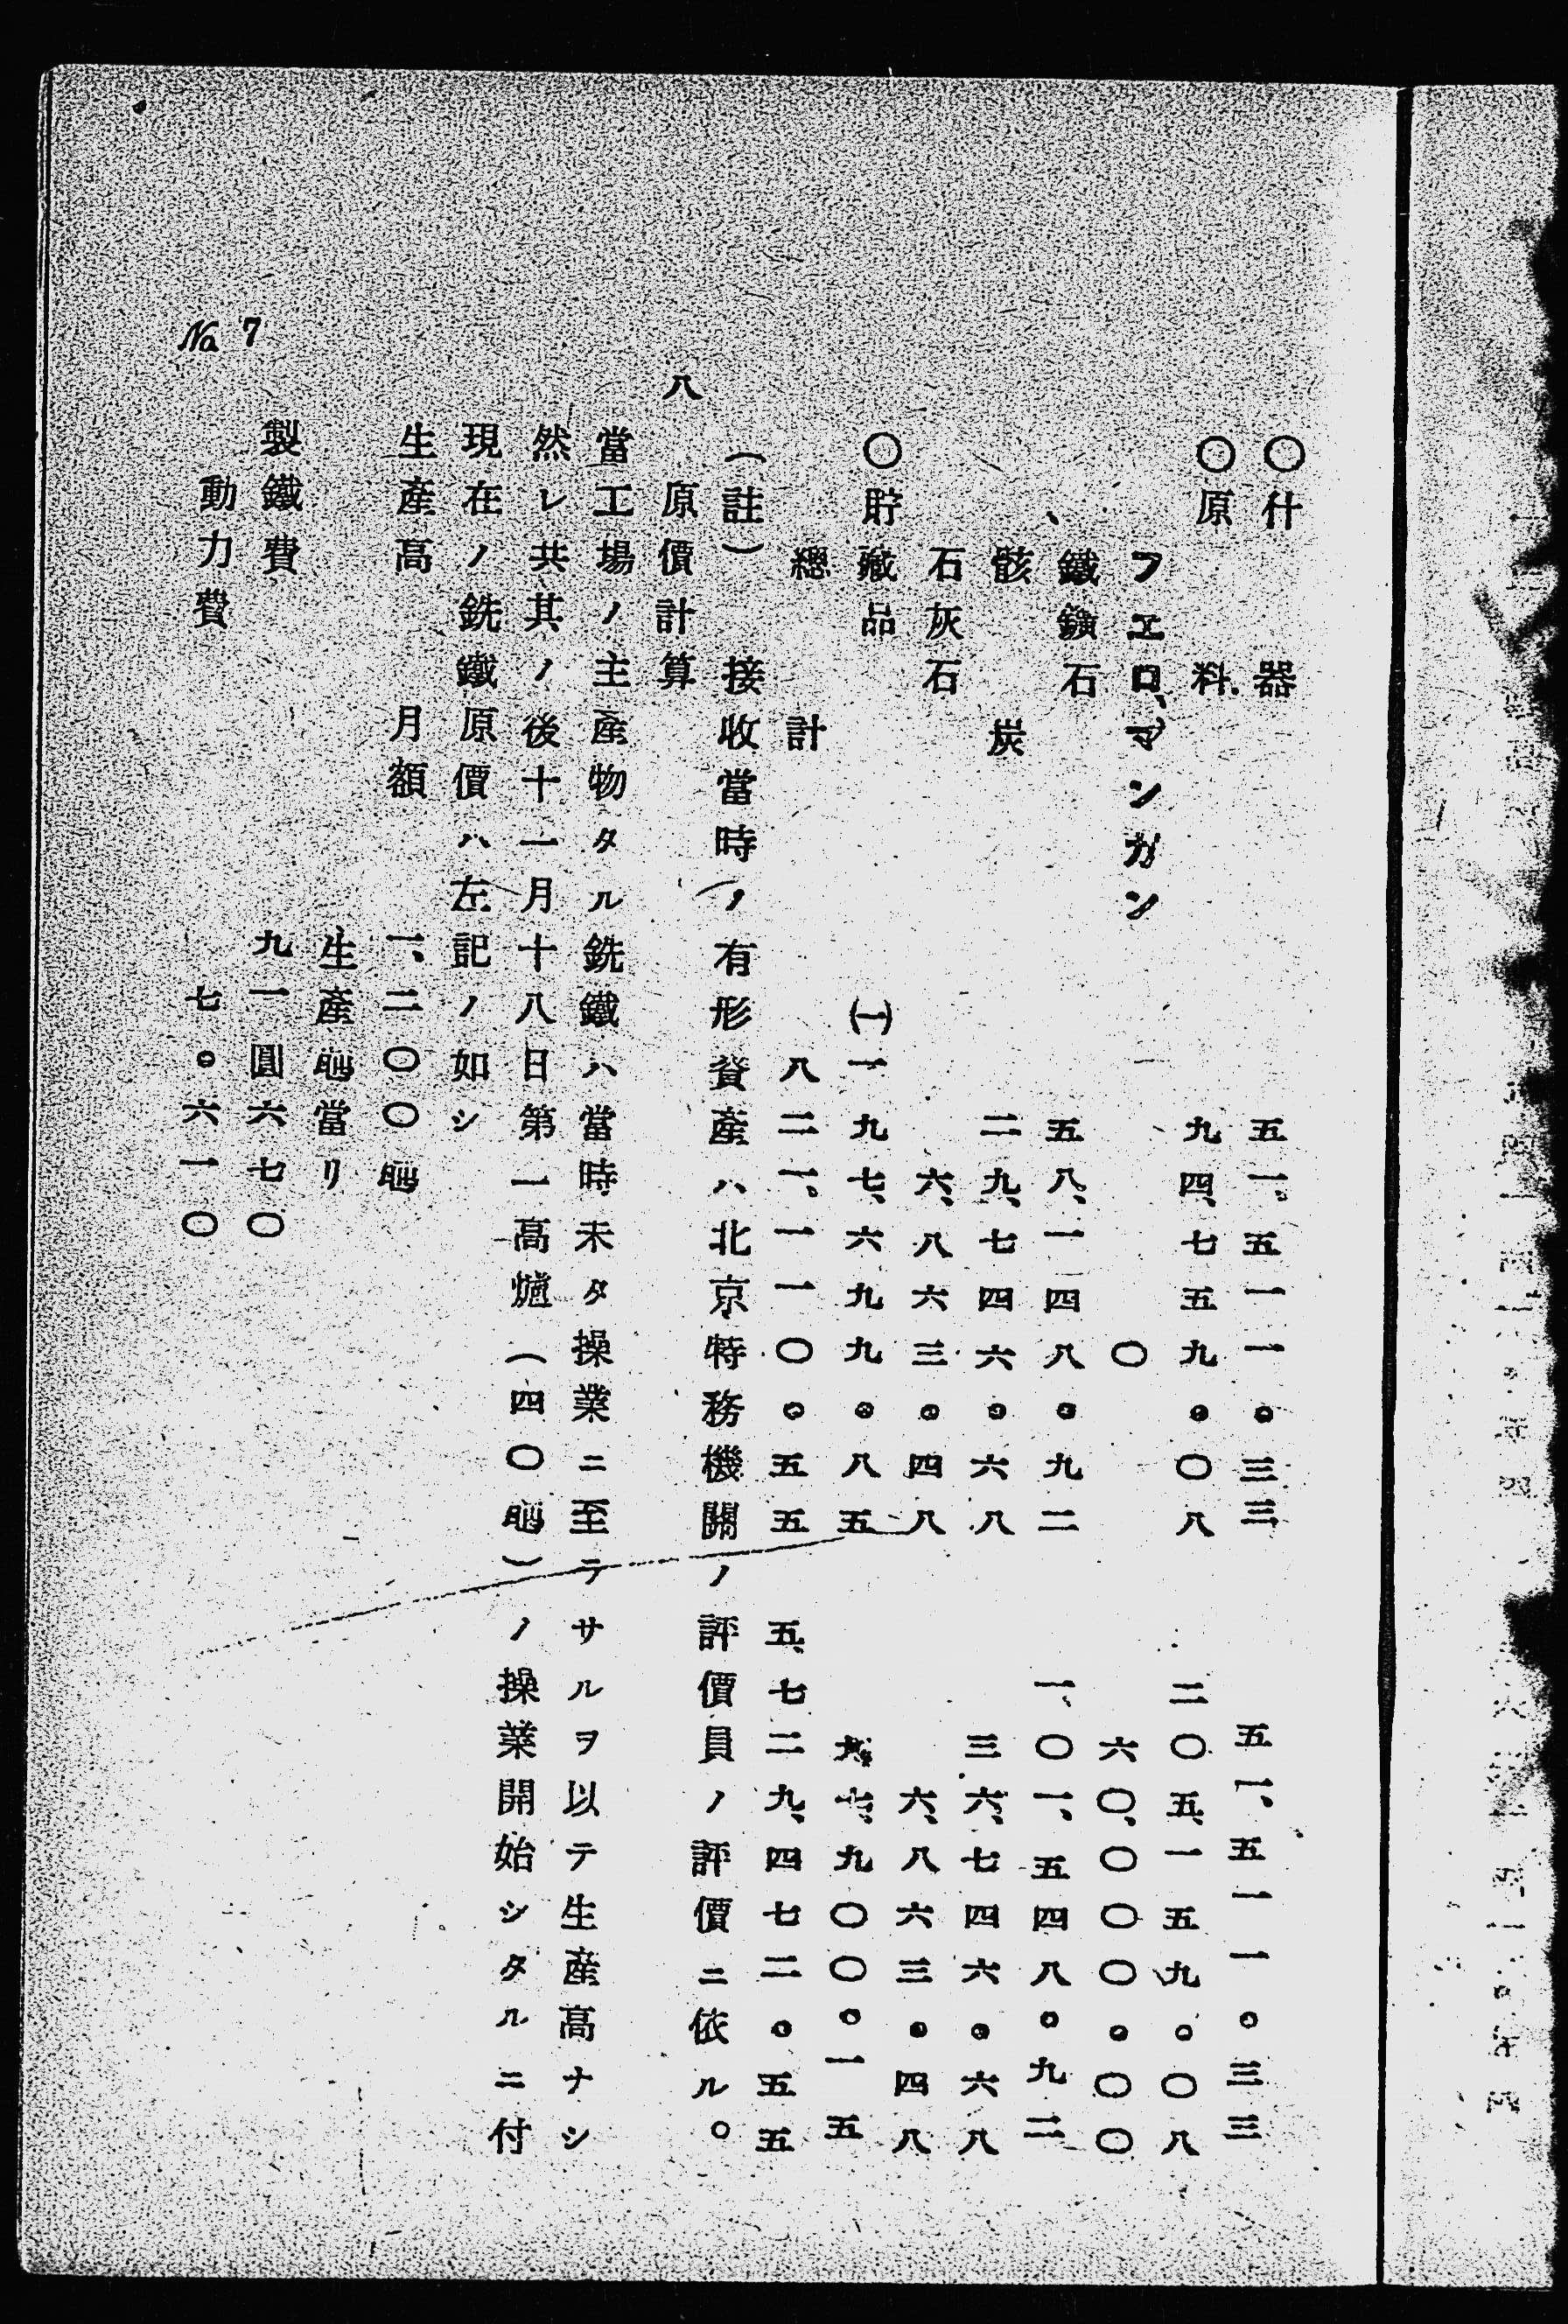 ○什器　五一、五一一。三三　五一、五一一。三三
○原料　九四、七五九。〇八　二〇五、一五九。〇八
フエロ、マンガン　〇　六〇、〇〇〇。〇〇
鐵鑛石　五八、一四八。九二　一、〇一、五四八。九二
骸炭　二九、七四六。六八　三六、七四六。六八
石灰石　六、八六三。四八　六、八六三。四八
○貯藏品　(一)一九七、六九九。八五　七、九〇〇。一五
總計　八二一、一一〇。五五　五、七二九、四七二。五五
(註)　接收當時ノ有形資產ハ北京特務機關ノ評價員ノ評價ニ依ル。
八　原價計算
當工場ノ主產物タル銑鐵ハ當時未タ操業ニ至テサルヲ以テ生產高ナシ
然レ共其ノ後十一月十八日第一高爐(四〇瓲)ノ操業開始シタルニ付
現在ノ銑鐵原價ハ左記ノ如シ
生產高　月額　一、二〇〇瓲
生產瓲當リ
製鐵費　九一圓六七〇
動力費　七。六一〇
No 7